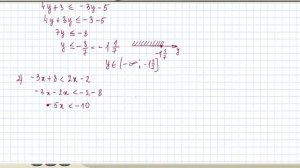 4y+3 ≤ -3y-5
4y+3y ≤ -3-5
7y ≤ -8
y ≤ -8/7 = -1 1/7
-1 1/7 y
y∈(-∞; -1 1/7]
2) -3x+8 < 2x-2
-3x-2x < -2-8
-5x < -10